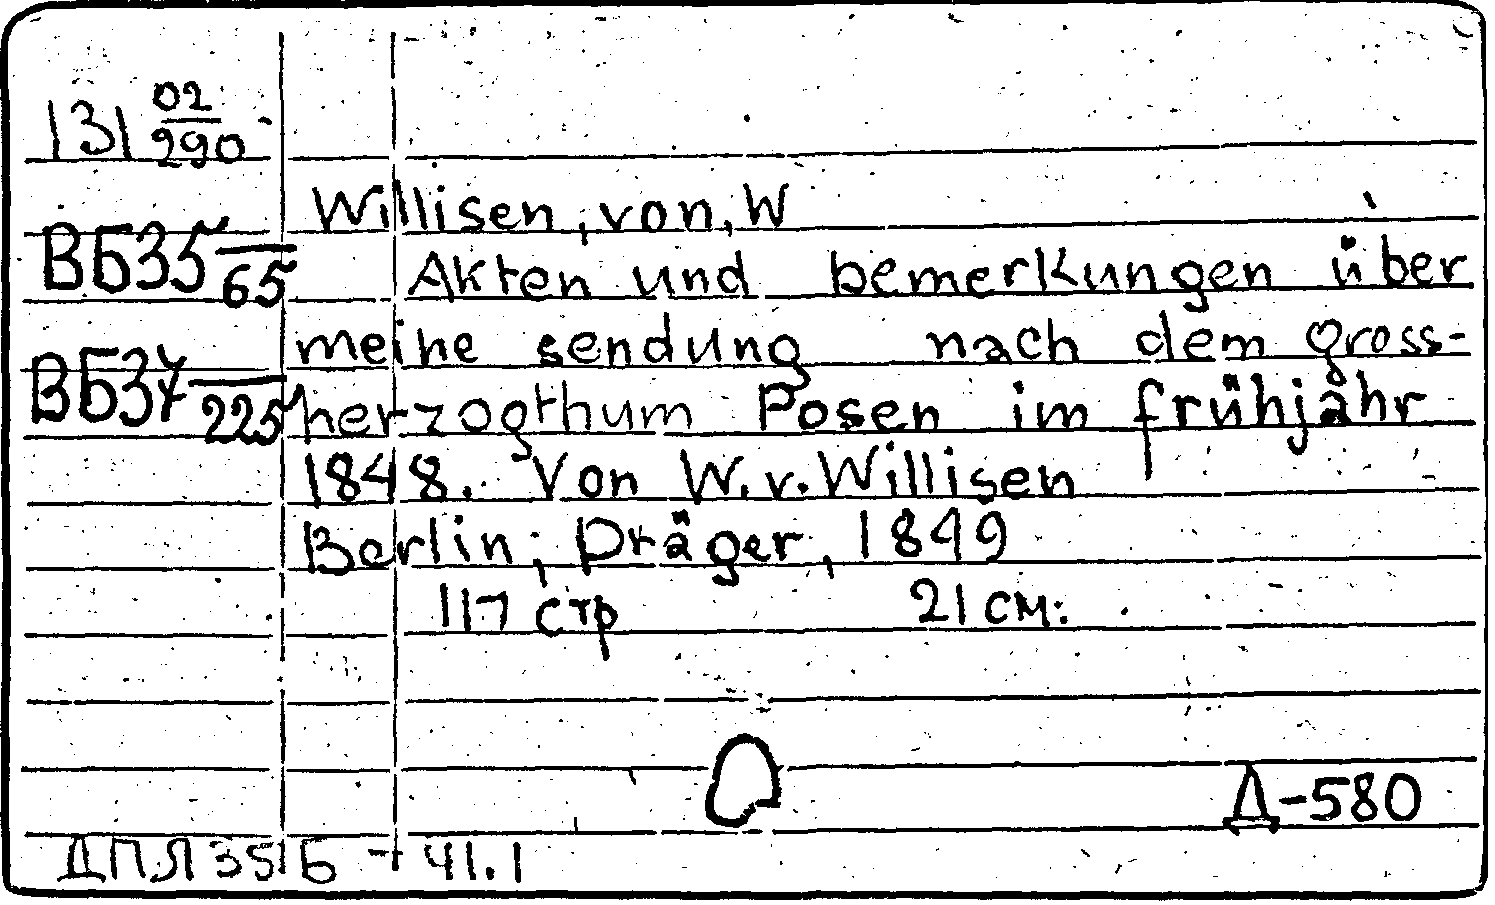 131 02/290
Willisen, von, W
ВБ35 /65
Akten und bemerkungen über
meine sendung nach dem gross-
ВБ37 /225
herzogthum Posen im frühjähr
1848. Von W. v. Willisen
Berlin, Dräger, 1849
117 стр 21 см.
Д-580
ДПЛ 35 Б - 41.1